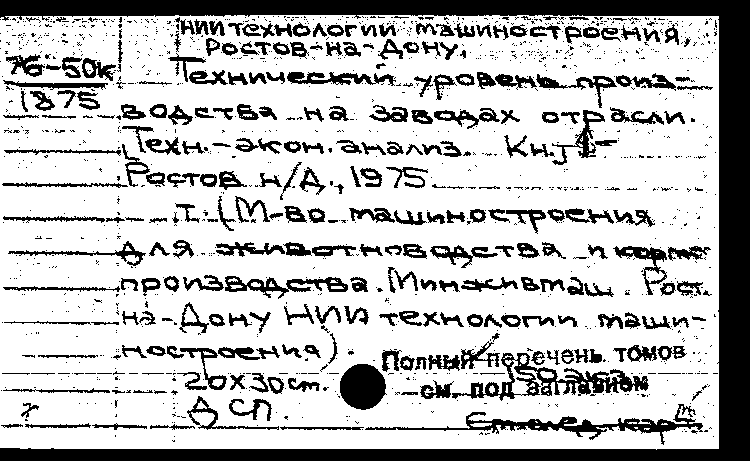 НИИ технологии машиностроения,
Ростов-на-Дону,
76-50к
1875
Технический уровень произ-
водства на заводах отрасли.
Техн.-экон. анализ. Кн.
Ростов н/Д., 1975.
т. (М-во машиностроения
для животноводства и кормо-
производства. Минживмаш. Рост.
на-Дону НИИ технологии маши-
ностроения).
Полный перечень томов
20х30см. 150 экз.
см. под заглавием
ДСП.
См. след. карт.